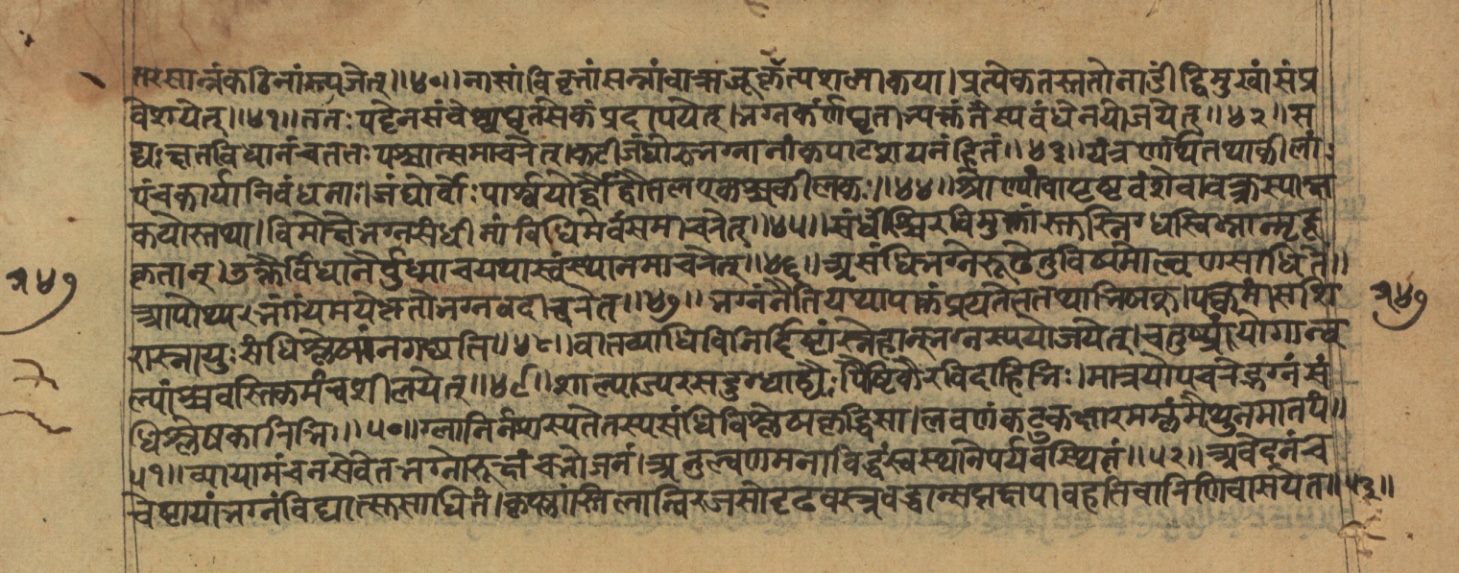 तरसान्नंकठिनांस्त्यजेत्॥४०॥नासांविवृतांसन्नांवाऋजूकृत्यशलाकया।प्रत्येकतस्ततोनाडींद्विमुखांसंप्र
वेशयेत्॥४१॥ततःपट्टेनसंवेष्ट्यघृतसेकंप्रदापयेत्।भग्नकर्णंघृताभ्यक्तंतस्यबंधेनयोजयेत्॥४२॥स
द्यःक्षतविधानंचततःपश्चात्समाचरेत्।कटीजंघोरुभग्नानांकपाटशयनंहितं॥४३॥यंत्रणार्थंतथाकीलाः
पंचकार्यानिबंधनाः।जंघोर्वोःपार्श्वयोर्द्वौद्वौतलएकश्चकीलकः॥४४॥श्रोण्यांवापृष्टवंशेवावक्त्रस्याक्ष
कयोस्तथा।विमोक्षेभग्नसंधीनांविधिमेवंसमाचरेत्॥४५॥संधींश्चिरविमुक्तांस्तुस्निग्धस्विन्नान्मृदू
कृतान्।उक्तैर्विधानैर्बुध्याचयथास्वंस्थानमाचरेत्॥४६॥असंधिभग्नेरूढेतुविषमोल्बणसाधिते॥
आपोथ्यभंगंयमयेत्ततोभग्नवदाचरेत्॥४७॥भग्नंनैतियथापाकंप्रयतेततथाभिषक्।पक्वमांसशि
रास्नायुःसंधिश्लेषंनगच्छति॥४८॥वातव्याधिविनिर्दिष्टान्स्नेहान्भग्नस्ययोजयेत्।चतुष्प्रयोगान्ब
ल्यांश्चवस्तिकर्मंचशीलयेत्॥४९॥शाल्याज्यरसदुग्धाद्यैःपौष्टिकैरविदाहिभिः।मात्रयोपचरेद्भग्नंसं
धिश्लेषकारिभिः॥५०॥ग्लानिर्नशस्यतेतस्यसंधिविश्लेषकृद्धिसा।लवणंकटुकंक्षारमम्लंमैथुनमातपं॥
५१॥व्यायामंचनसेवेतभग्नोरूक्षंचभोजनं।अनुल्बणमनाविद्धंस्वस्थानेपर्यवस्थितं॥५२॥अवेदनंच
चेष्टायांभग्नंविद्यात्सुसाधितं।कृष्णांस्तिलान्विरजसोदृढवस्त्रबद्धान्सप्तक्षपावहतिवारिणिवासयेत॥५३॥
२४७
२४७